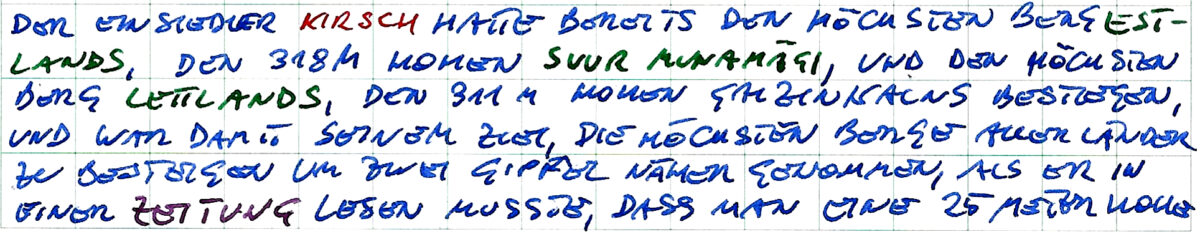 DER EINSIEDLER KIRSCH HATTE BEREITS DEN HÖCHSTEN BERG EST-
LANDS, DEN 318 M HOHEN SUUR MUNAMÄGI, UND DEN HÖCHSTEN
BERG LETTLANDS, DEN 311 M HOHEN GAIZINKALNS BESTIEGEN,
UND WAR DAMIT SEINEM ZIEL, DIE HÖCHSTEN BERGE ALLER LÄNDER
ZU BESTEIGEN UM ZWEI GIPFEL NÄHER GEKOMMEN, ALS ER IN
EINER ZEITUNG LESEN MUSSTE, DASS MAN EINE 25 METER HOHE